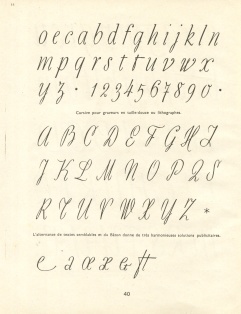 oecabdfghijkln
mpqrsttuvwx
yz · 1234567890 ·
Cursive pour graveurs en taille-douce ou lithographes
ABCDEFGHI
JKLMNOPQS
RTUVWXYZ *
L'alternance de textes semblables et du filéon donne de très harmonieuses solutions publicitaires.
40